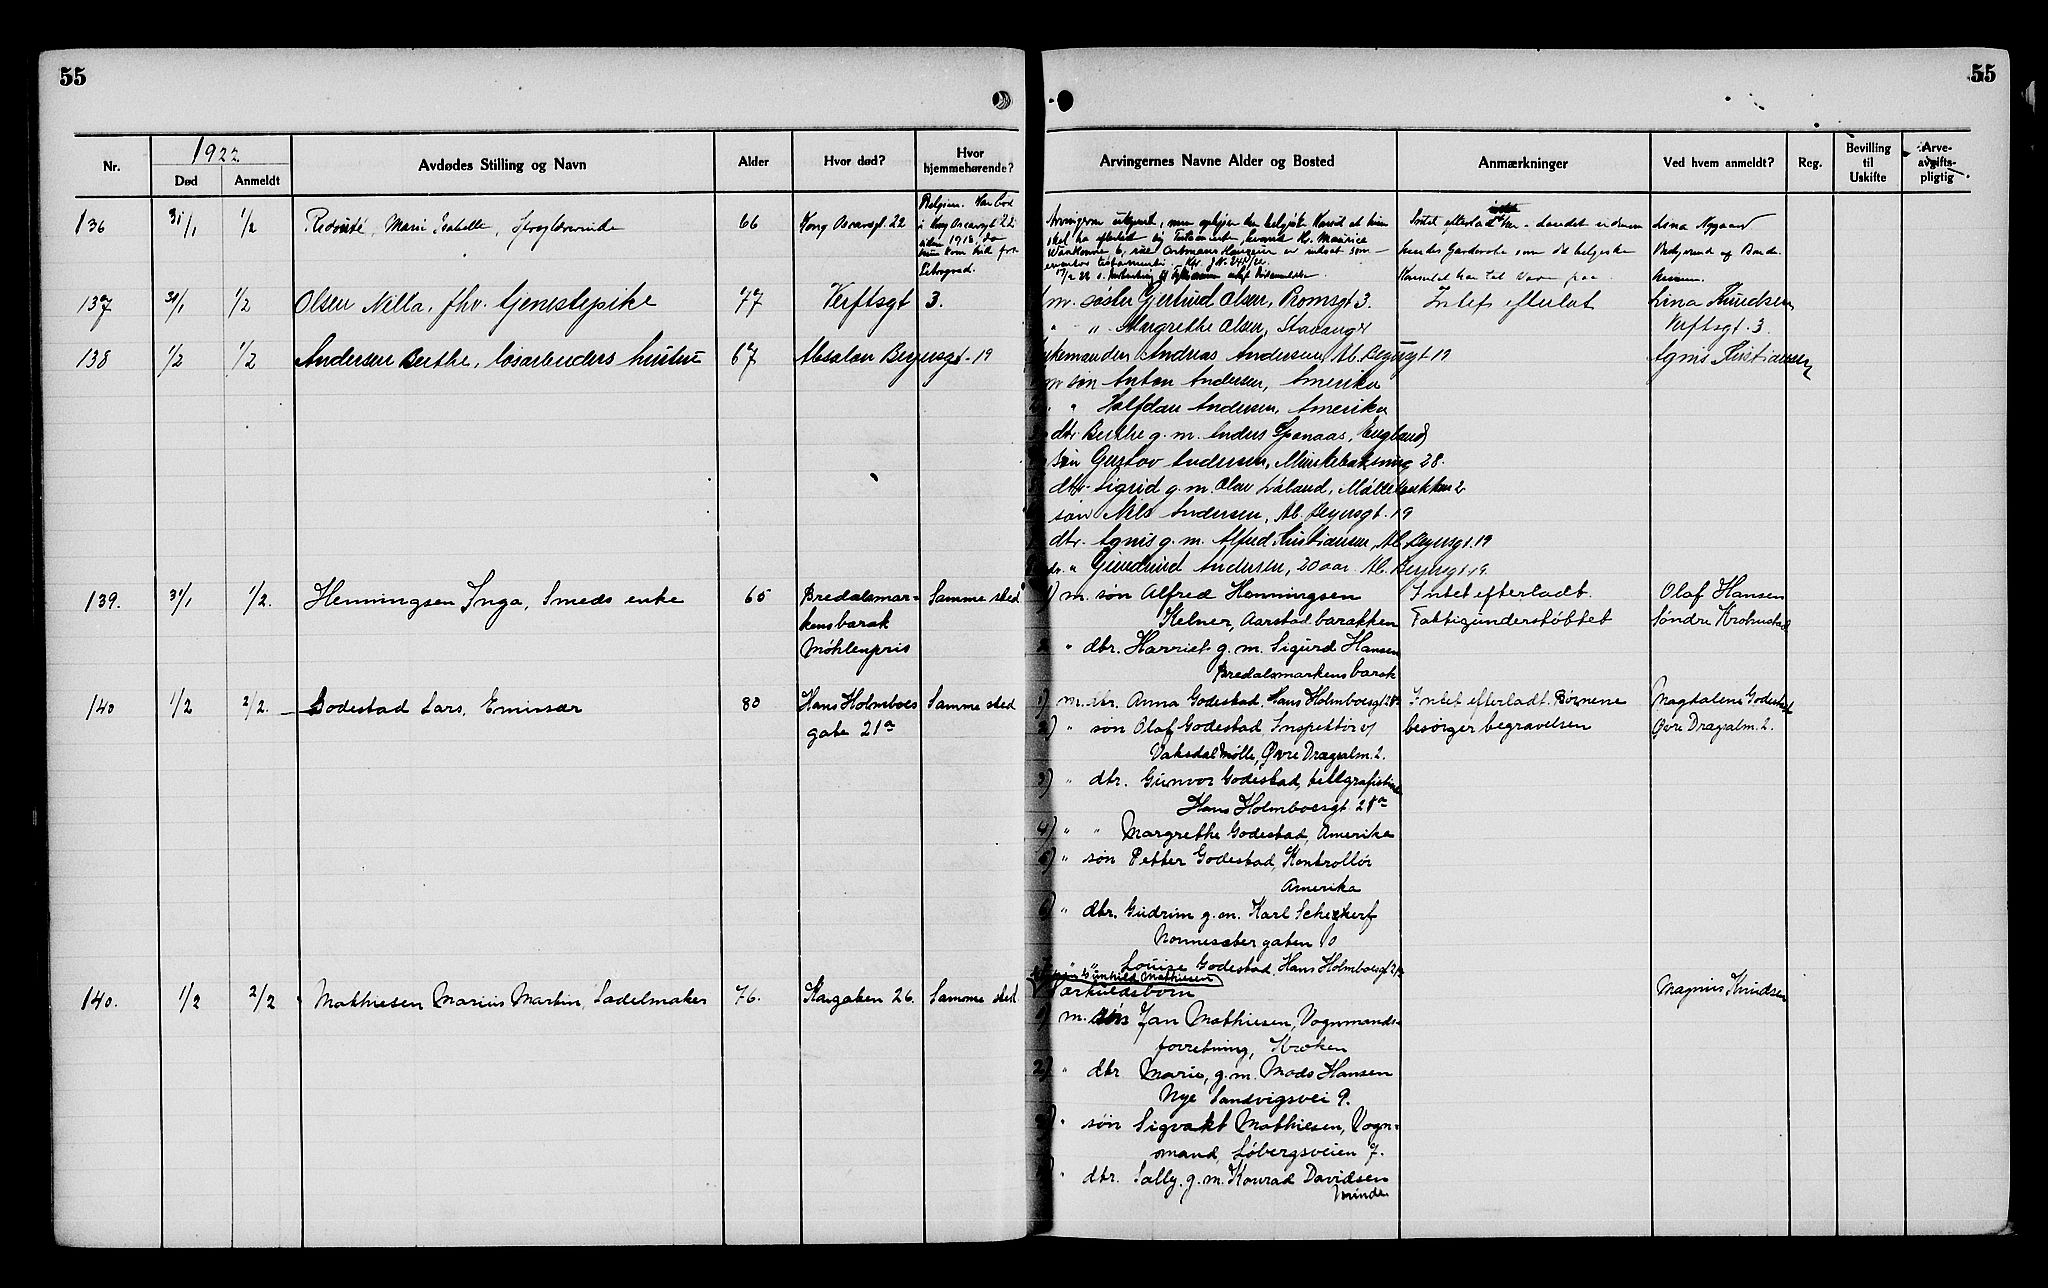 55
55
Nr.
1922
Død
Anmeldt
Avdødes Stilling og Navn
Alder
Hvor død?
Hvor hjemmehørende?
Arvingernes Navne Alder og Bosted
Anmærkninger
Ved hvem anmeldt?
Reg.
Bevilling til Uskifte
Arve-avgifts-pligtig
136
31/1
1/2
Marie Isabelle,
66
Kong Oscarsgt. 22
Belgien. Har bod
i Kong Oscarsgt 22
siden 1918, da
hun kom hid fra
Petrograd.
137
31/1
1/2
Olsen Nilla, fhv. tjenestepike
77
Verftsgt 3.
m. søster Gjertrud Olsen, Promsgt 3.
" " Margrethe Olsen, Stavanger
Intet efterlat
Lina Knudsen
Verftsgt. 3.
138
1/2
1/2
Andersen Berthe, løsarbeiders hustru
67
Absalon Beyersgt. 19
Enkemanden Andreas Andersen, Ab. Beyersgt 19
m søn Anton Andersen, Amerika
" " Halfdan Andersen, Amerika
dtr. Berthe g. m. Anders Spenaas, England
søn Gustav Andersen, Munkebaksmug 28.
dtr. Sigrid g. m. Olav Låland, Møllebakken 2
søn Nils Andersen, Ab. Beyersgt. 19
dtr. Agnis g. m. Alfred Kristiansen, Ab. Beyersgt. 19
dr. " Gundrund Andersen, 20 aar Ab. Beyersgt 19.
Agnis Kristiansen
139.
31/1
1/2.
Henningsen Inga, Smeds enke
65
Bredalsmar-
kensbarak
Møhlenpris
Samme sted
1) m. søn Alfred Henningsen
Kelner, Aarstad barakken
2 " dtr. Harriet g. m. Sigurd Hansen
Bredalsmarkens barak
Intet efterladt.
Fattigunderstøttet
Olaf Hansen
Søndre Krohnstad
140
1/2
2/2.
Godestad Lars, Emissær
80
Hans Holmboes
gate 21a
Samme sted
1) m. dtr. Anna Godestad, Hans Holmboesgt 21a
2) " søn Olaf Godestad, Inspektør v/
Vaksdal Mølle, Øvre Dragsalm. 2.
3) " dtr. Gunvor Godestad, telegrafistinde
Hans Holmboesgt. 21a
4) " " Margrethe Godestad, Amerika
5) " søn Petter Godestad, Kontrollør
Amerika
6) " dtr. Gudrun g. m. Karl
Nonneseter gaten 10
" Louise Godestad, Hans Holmboesgt 21a
Intet efterladt. Børnene
besørger begravelsen
Magdalene Godestad
Øvre Dragsalm. 2.
140.
1/2
2/2
Mathiesen Marius Martin, Sadelmaker
76.
Kaigaten 26.
Samme sted.
Gunhild Mathiesen
Særkuldsbørn
1) m. søn Jan Mathiesen, Vognmands-
forretning, Kroken
2) " dtr Marie, g. m. Mads Hansen
Nye Sandvigsvei 9.
3) " søn Sigvart Mathiesen, Vogn-
mand, Løbergsveien 7.
" dtr. Sally, g. m. Konrad Davidsen
Minde
Magnus Knudsen